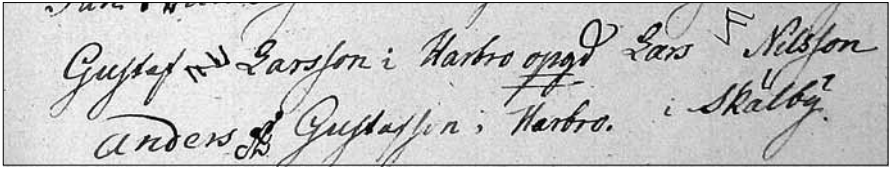 Gustaf Larsson i Harbro opgd Lars Nilsson
Anders Gustafsson i Harbro. i Skälby.